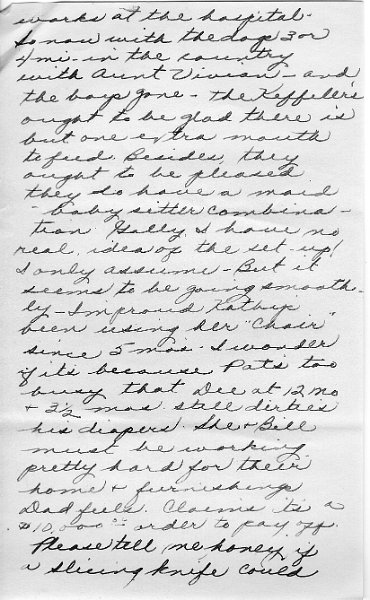 works at the hospital.
So now with the dog 3 or
4 mi. in the country
with Aunt Vivian - and
the boys gone - the Keffeler's
ought to be glad there is
but one extra mouth
to feed. Besides, they
ought to be pleased
they so have a maid
- baby sitter combina-
tion Golly, I have no
real idea of the set-up!
I only assume - But it
seems to be going smooth-
ly - Im proud Kathy's
been using her "Chair"
since 5 mos. I wonder
if its because Pat's too
busy that Dee at 12 mo
+ 3 1/2 mos. still dirties
his diapers. She + Bill
must be working
pretty hard for their
home + furnishings
Dad feels. Claims its a
$10,000.00 order to pay off.
Please tell me honey, if
a slicing knife could